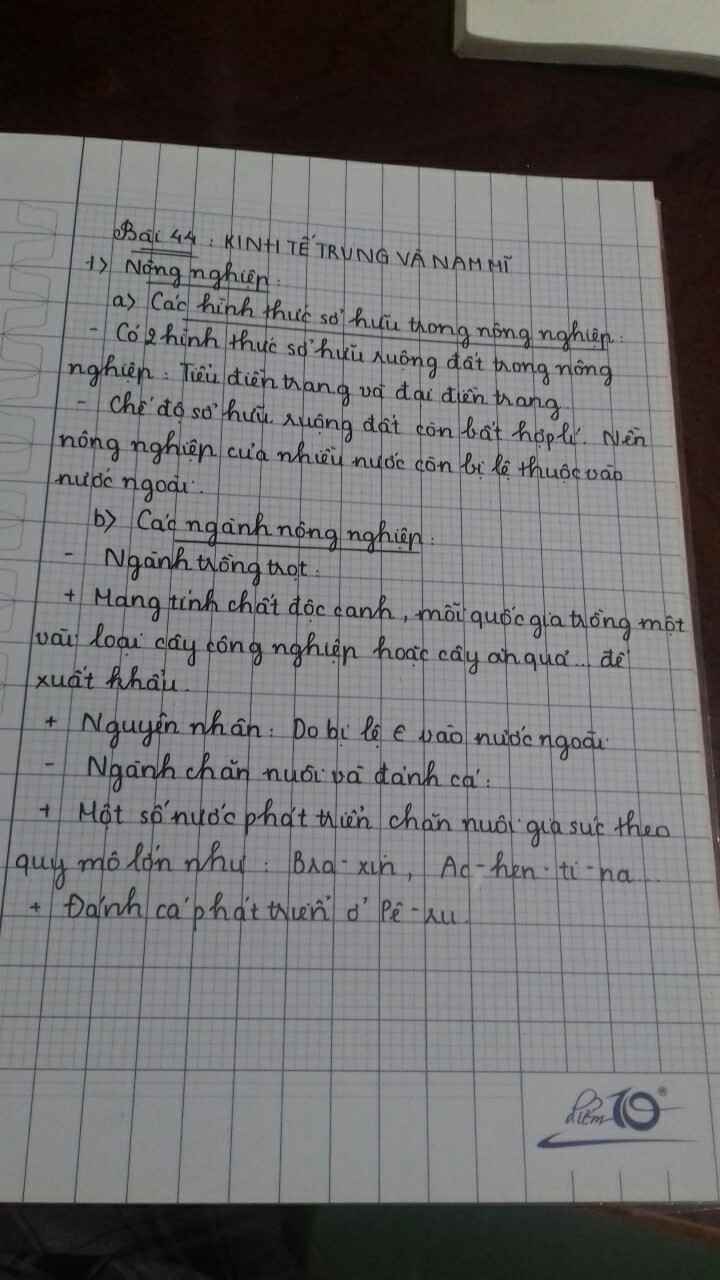 Bài 44 : KINH TẾ TRUNG VÀ NAM MĨ
1) Nông nghiệp :
a) Các hình thức sở hữu trong nông nghiệp :
- Có 2 hình thức sở hữu ruộng đất trong nông
nghiệp : Tiểu điền trang và đại điền trang
- Chế độ sở hữu ruộng đất còn bất hợp lí. Nền
nông nghiệp của nhiều nước còn bị lệ thuộc vào
nước ngoài.
b) Các ngành nông nghiệp :
- Ngành trồng trọt :
+ Mang tính chất độc canh, mỗi quốc gia trồng một
vài loại cây công nghiệp hoặc cây ăn quả... để
xuất khẩu.
+ Nguyên nhân : Do bị lệ € vào nước ngoài
- Ngành chăn nuôi và đánh cá :
+ Một số nước phát triển chăn nuôi gia súc theo
quy mô lớn như : Bra-xin, Ac-hen-ti-na...
+ Đánh cá phát triển ở Pê-ru.
điểm 10